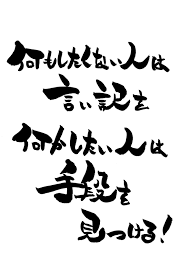 何もしたくない人は
言い記を
何かしたい人は
手段を
見つける!